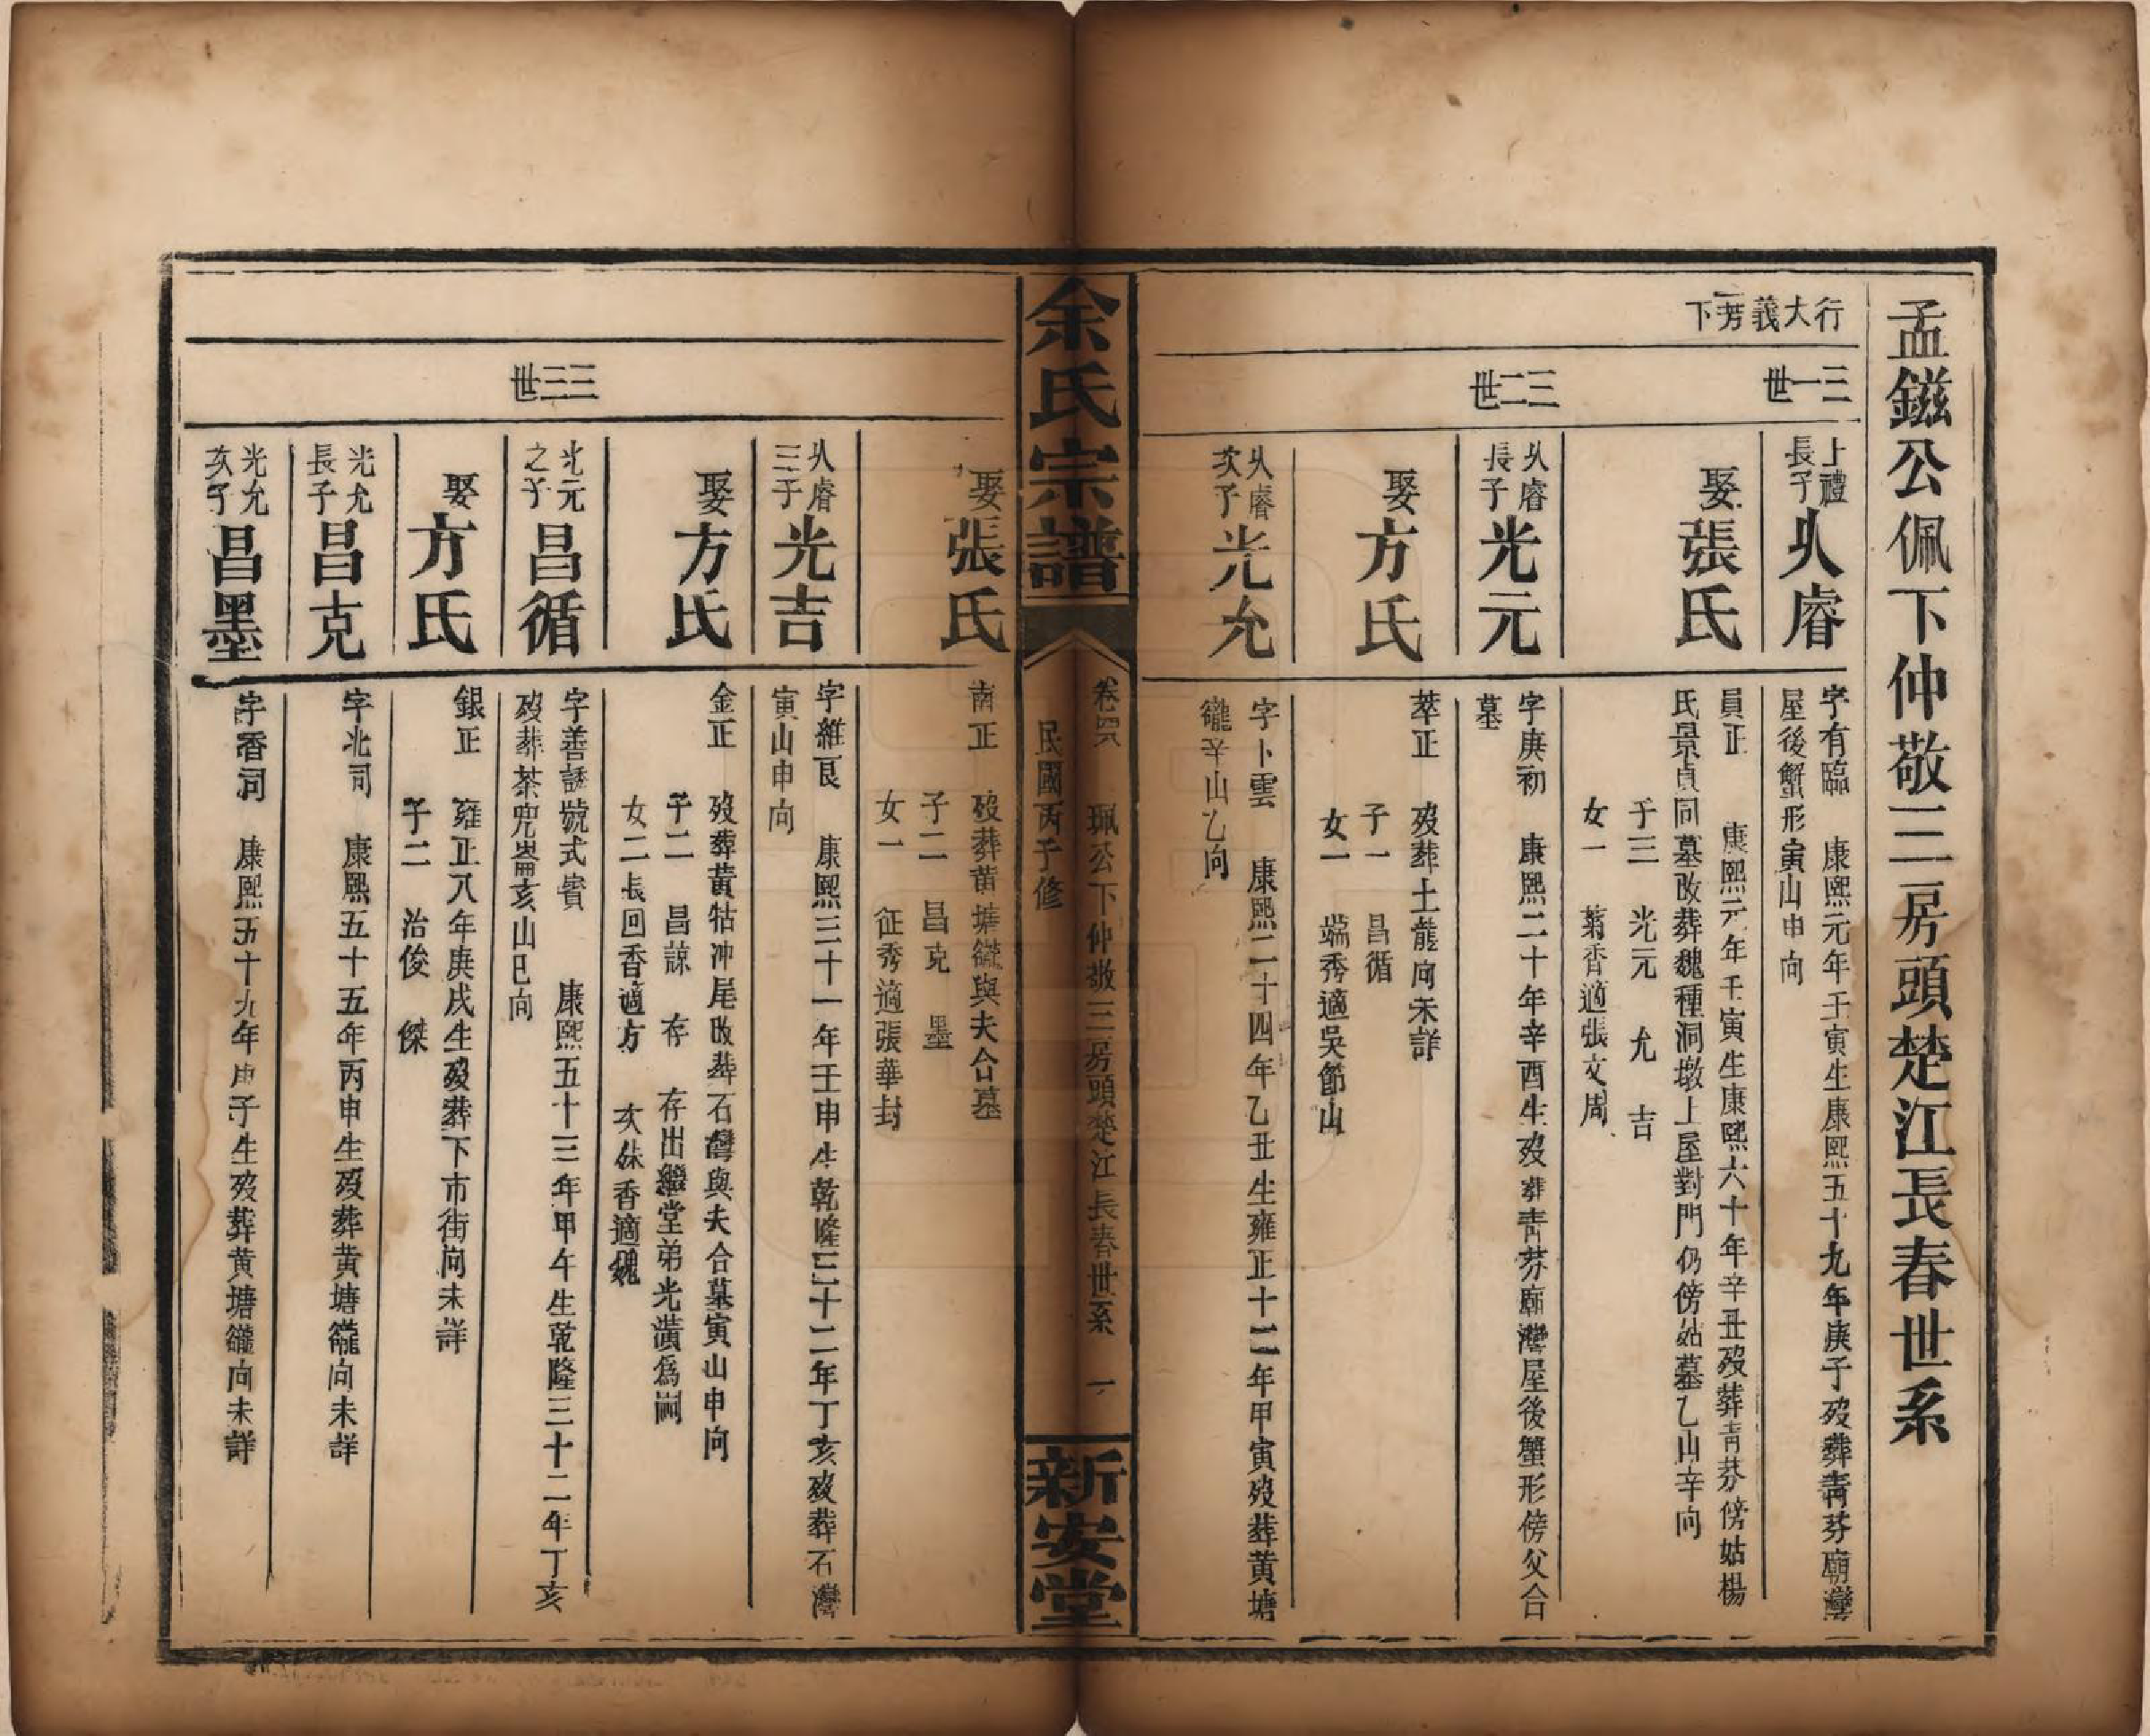 孟鎡公佩下仲敬三房頭楚江長春世系
行大義芳下
三一世
三二世
上禮長子 㐆睿
字有臨 康熙元年壬寅生康熙五十九年庚子歿葬靑芬廟灣
屋後蟹形寅山申向
娶張氏
員正 康熙元年壬寅生康熙六十年辛丑歿葬靑芬傍姑楊
氏景貞同墓改葬魏種洞墩上屋對門仍傍姑墓乙山辛向
子三 光元 允 吉
女一 菊香適張文周
睿長子 光元
字庚初 康熙二十年辛酉生歿葬靑芬廟灣屋後蟹形傍父合
墓
娶方氏
萃正 歿葬土龍向未詳
子一 昌循
女一 端秀適吳節山
睿次子 光允
字卜雲 康熙二十四年乙丑生雍正十二年甲寅歿葬黃塘
龍辛山乙向
余氏宗譜
卷 珮公下仲敬三房頭楚江長春世系 一
民國丙子修
新安堂
三三世
娶張氏
南正 歿葬黃塘與夫合墓
子二 昌克 墨
女一 征秀適張華封
睿三子 光吉
字維良 康熙三十一年壬申生乾隆三十二年丁亥歿葬石灣
寅山申向
娶方氏
金正 歿葬黃牯冲尾改葬石灣與夫合墓寅山申向
子二 昌諒 存 存出繼堂弟光潢爲嗣
女二長回香適方 次妹香適魏
光元之子 昌循
字善誘號式賓 康熙五十三年甲午生乾隆三十二年丁亥
歿葬茶兜崙亥山巳向
娶方氏
銀正 雍正八年庚戌生歿葬下市街向未詳
子二 治俊 傑
光允長子 昌克
字兆司 康熙五十五年丙申生歿葬黃塘向未詳
光允次子 昌墨
字香詞 康熙五十九年庚子生歿葬黃塘向未詳